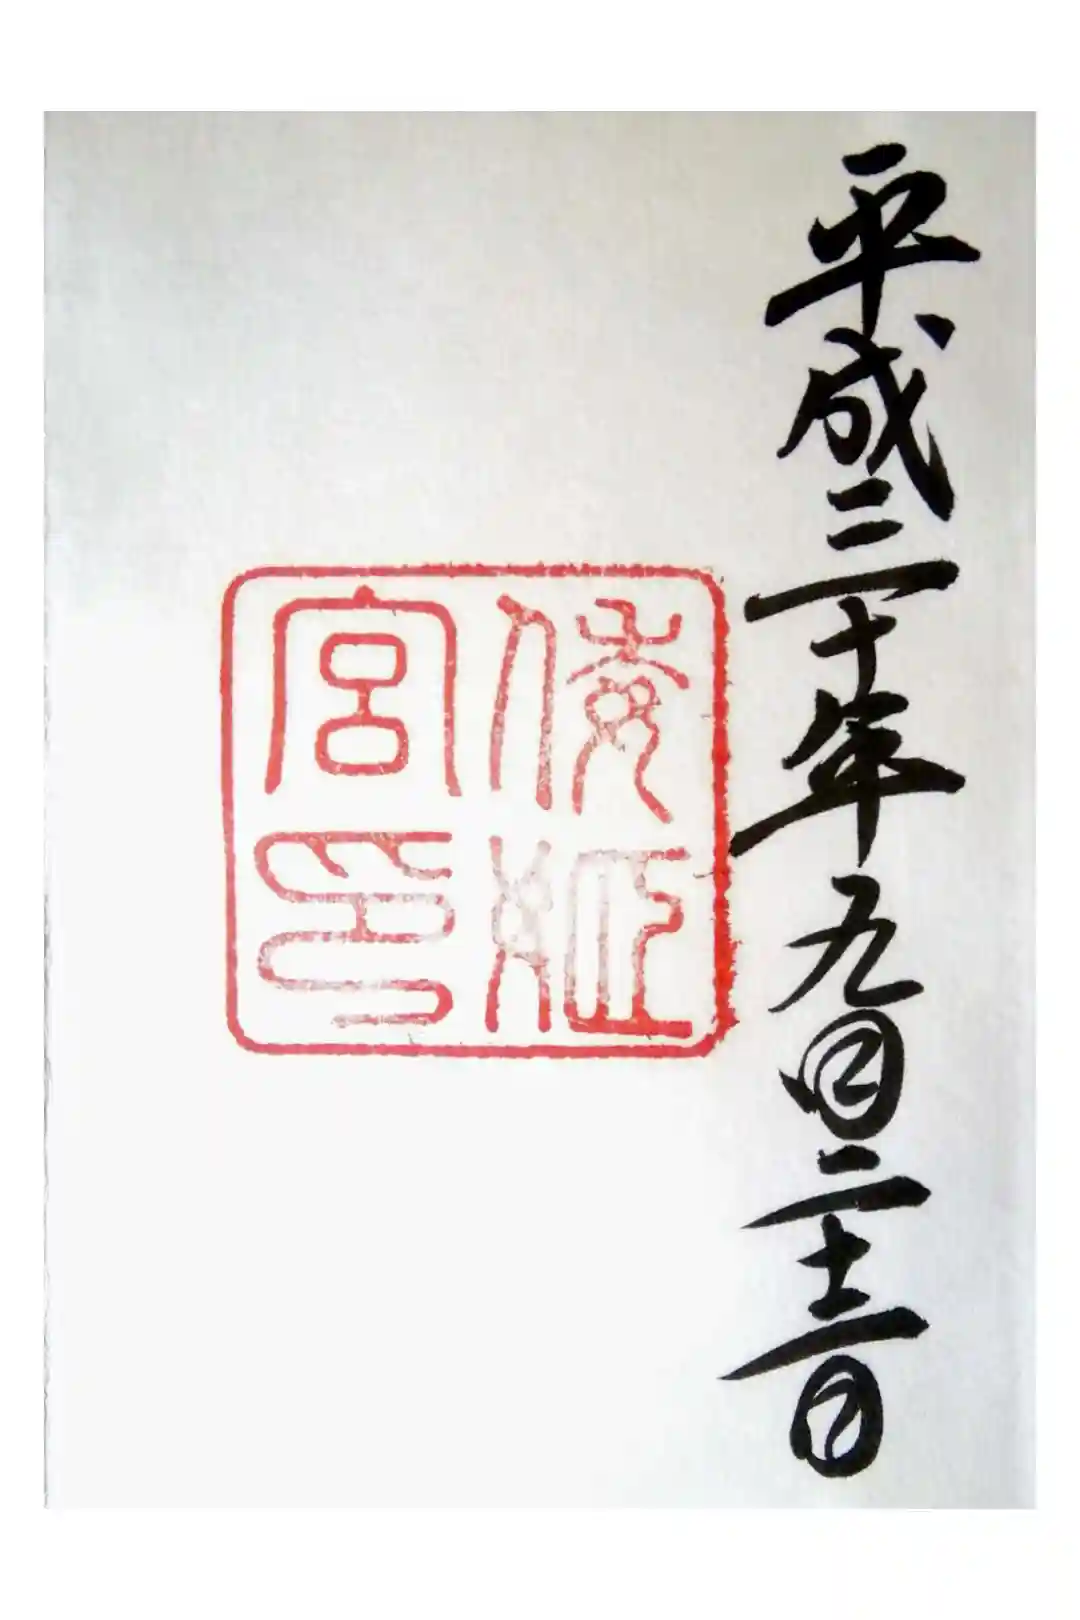 平成三十年九月二十三日
倭姫
宮印